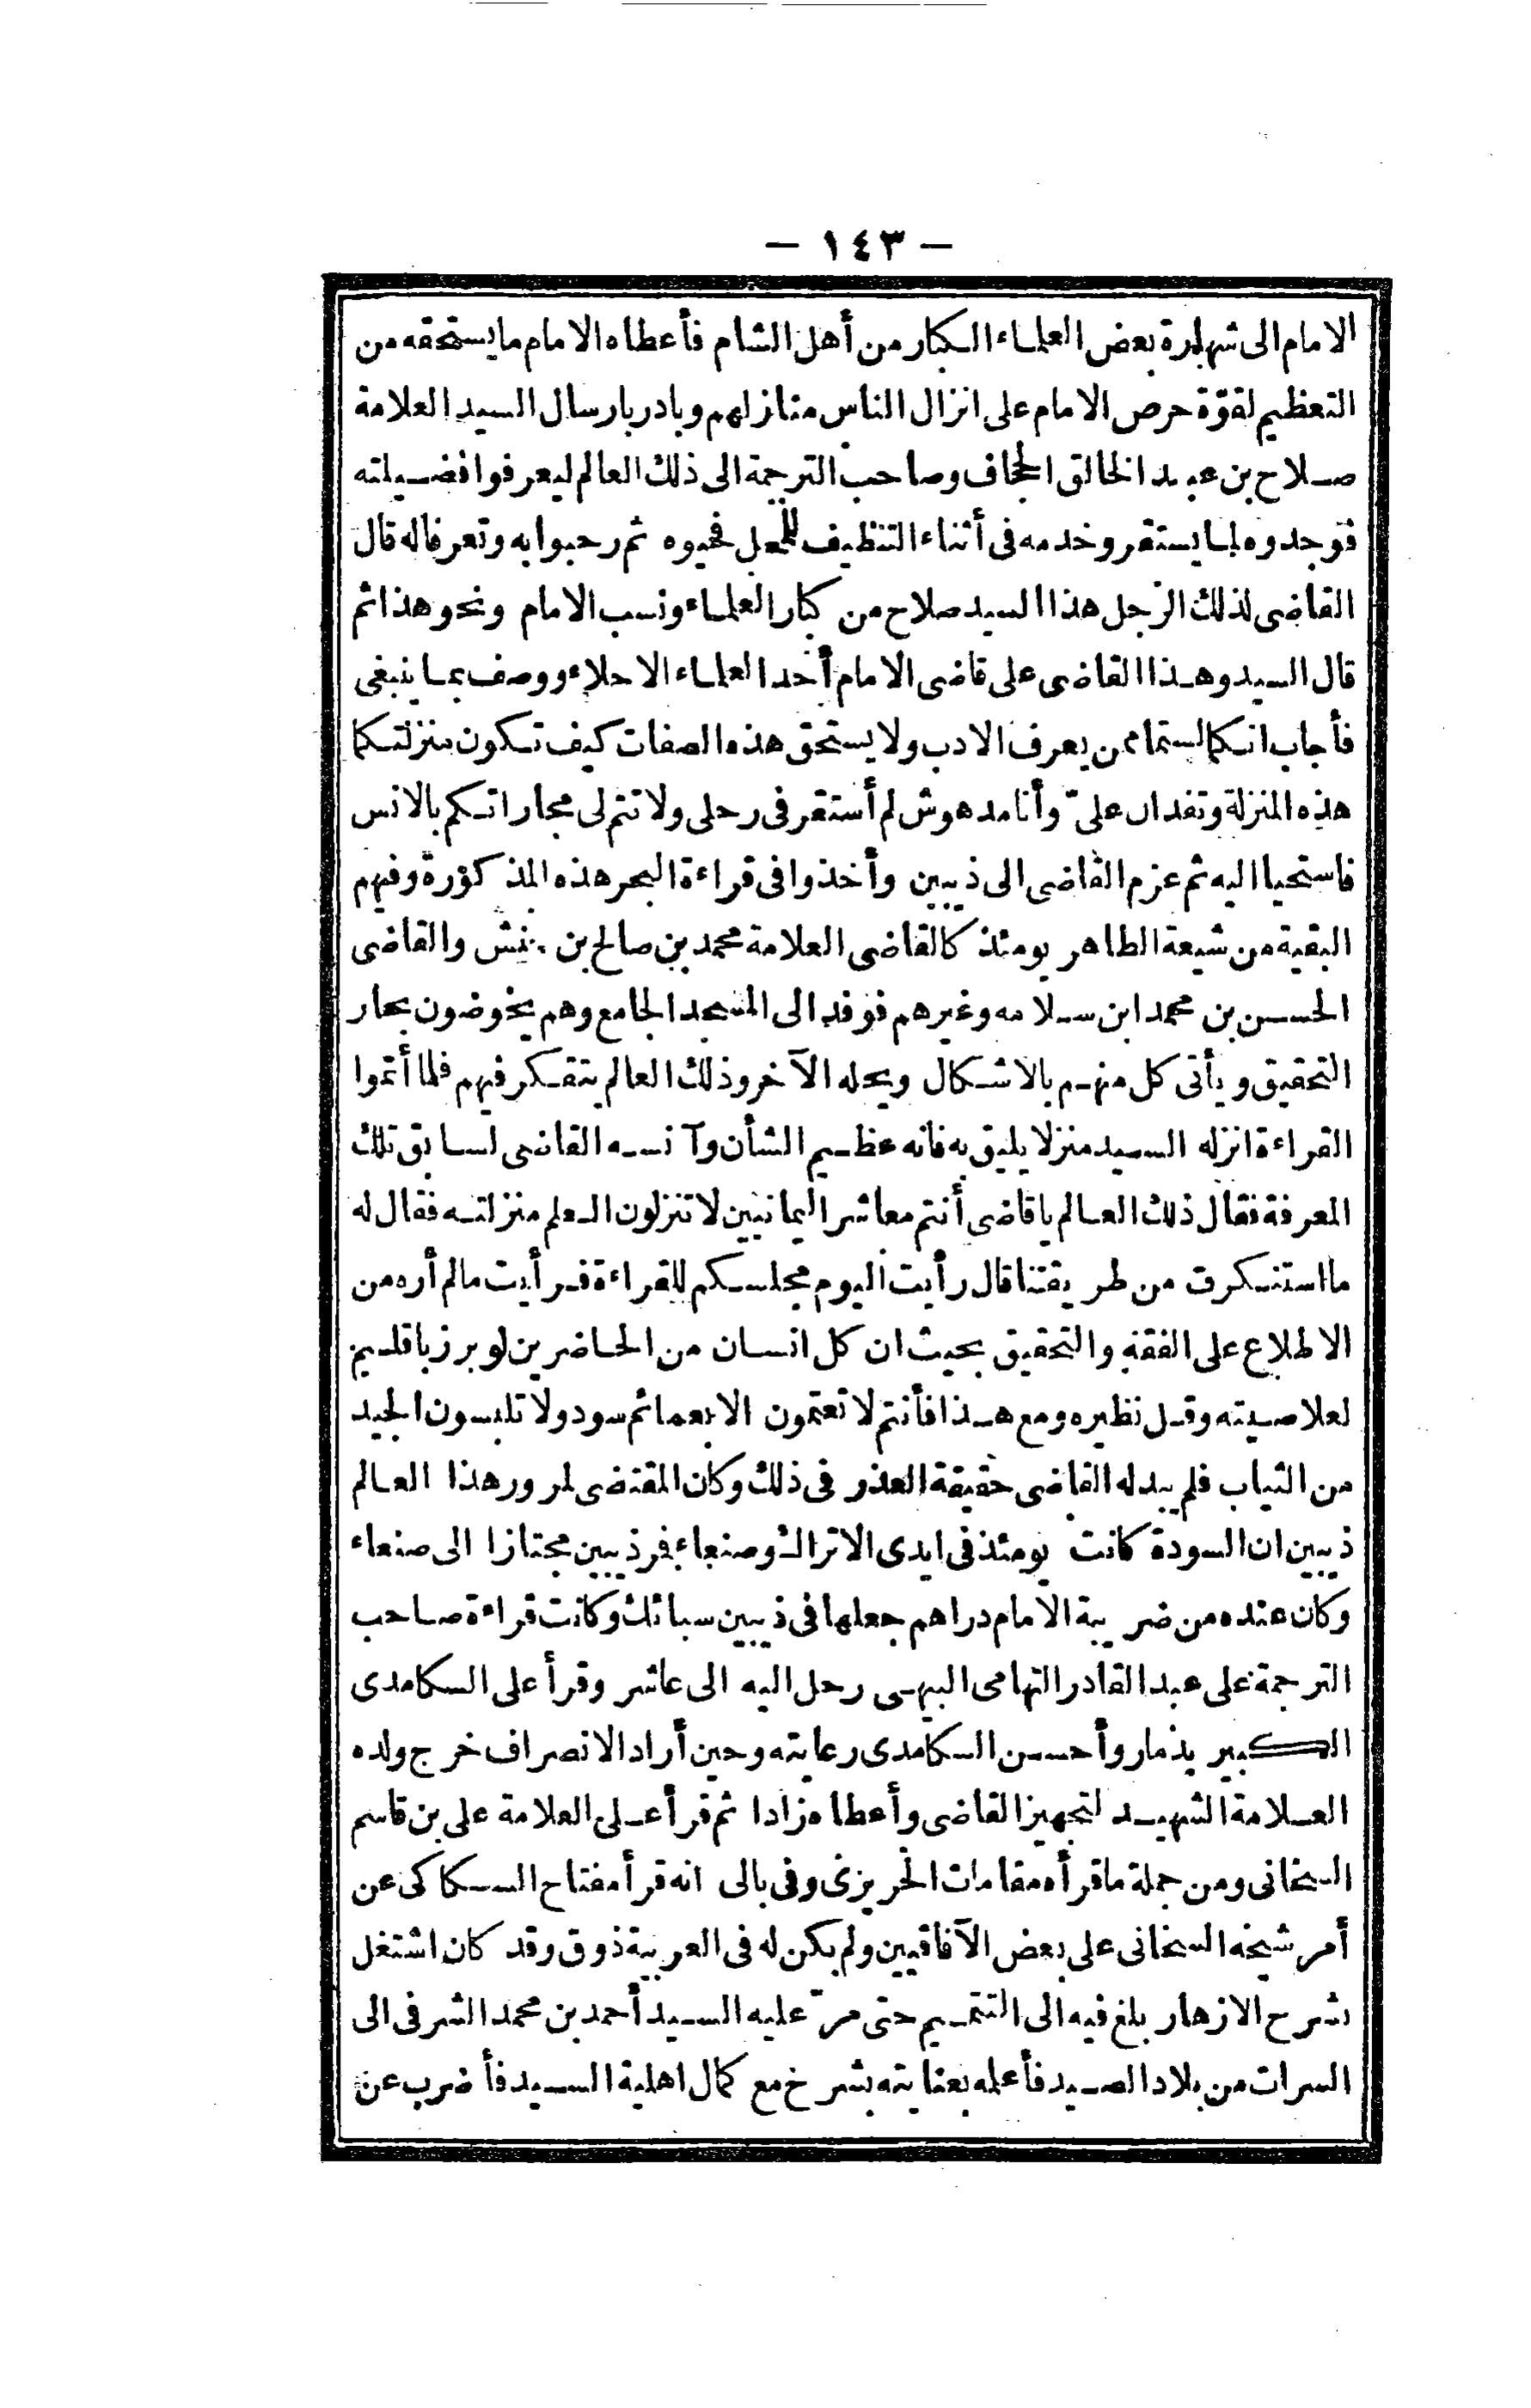 — ١٤٣ —
الامام الى شهارة بعض العلماء الكبار من أهل الشام فأعطاه الامام ما يستحقه من
التعظيم لقوّة حرص الامام على انزال الناس منازلهم وبادر بارسال السيد العلامة
صلاح بن عبد الخالق الجحاف وصاحب الترجمة الى ذلك العالم ليعرفوا فضيلته
فوجدوه لما يستقر وخدمه فى أثناء التنظيف للمحل فحيوه ثم رحبوا به وتعرفا له قال
القاضى لذلك الرجل هذا السيد صلاح من كبار العلماء ونسب الامام ونحو هذا ثم
قال السيد وهذا القاضى على قاضى الامام أحد العلماء الاجلاء ووصف بما ينبغى
فأجاب انكما لستما ممن يعرف الادب ولا يستحق هذه الصفات كيف تكون منزلتكما
هذه المنزلة وتفدان علىّ وأنا مدهوش لم أستقر فى رحلى ولا تتم لى مجاراتكم بالانس
فاستحيا اليه ثم عزم القاضى الى ذيبين وأخذوا فى قراءة البحر هذه المذكورة وفيهم
البقية من شيعة الظاهر يومئذ كالقاضى العلامة محمد بن صالح بن حنش والقاضى
الحسن بن محمد ابن سلامه وغيرهم فوفد الى المسجد الجامع وهم يخوضون بحار
التحقيق ويأتى كل منهم بالاشكال ويحله الآخر وذلك العالم يتفكر فيهم فلما أتموا
القراءة انزله السيد منزلا يليق به فانه عظيم الشأن وآنسه القاضى لسابق تلك
المعرفة فقال ذلك العالم يا قاضى أنتم معاشر اليمانيين لا تنزلون العلم منزلته فقال له
ما استنكرت من طريقتنا قال رأيت اليوم مجلسكم للقراءة فرأيت ما لم أره من
الاطلاع على الفقه والتحقيق بحيث ان كل انسان من الحاضرين لو برز باقليم
لعلا صيته وقل نظيره ومع هذا فأنتم لا تعتمون الا بعمائم سود ولا تلبسون الجيد
من الثياب فلم يبد له القاضى حقيقة العذر فى ذلك وكان المقتضى لمرور هذا العالم
ذيبين ان السودة كانت يومئذ فى ايدى الاتراك وصنعاء فمر ذيبين مجتازا الى صنعاء
وكان عنده من ضريبة الامام دراهم جعلها فى ذيبين سبائك وكانت قراءة صاحب
الترجمة على عبد القادر التهامى البيهى رحل اليه الى عاشر وقرأ على السكامدى
الكبير بذمار وأحسن السكامدى رعايته وحين أراد الانصراف خرج ولده
العلامة الشهيد لتجهيز القاضى وأعطاه زادا ثم قرأ على العلامة على بن قاسم
السنحانى ومن جملة ما قرأه مقامات الحريرى وفى بالى انه قرأ مفتاح السكاكى عن
أمر شيخه السنحانى على بعض الآفاقيين ولم يكن له فى العربية ذوق وقد كان اشتغل
بشرح الازهار بلغ فيه الى التتميم حتى مرّ عليه السيد أحمد بن محمد الشرفى الى
السرات من بلاد الصيد فأعلمه بعنايته بشرح مع كمال اهلية السيد فأضرب عن